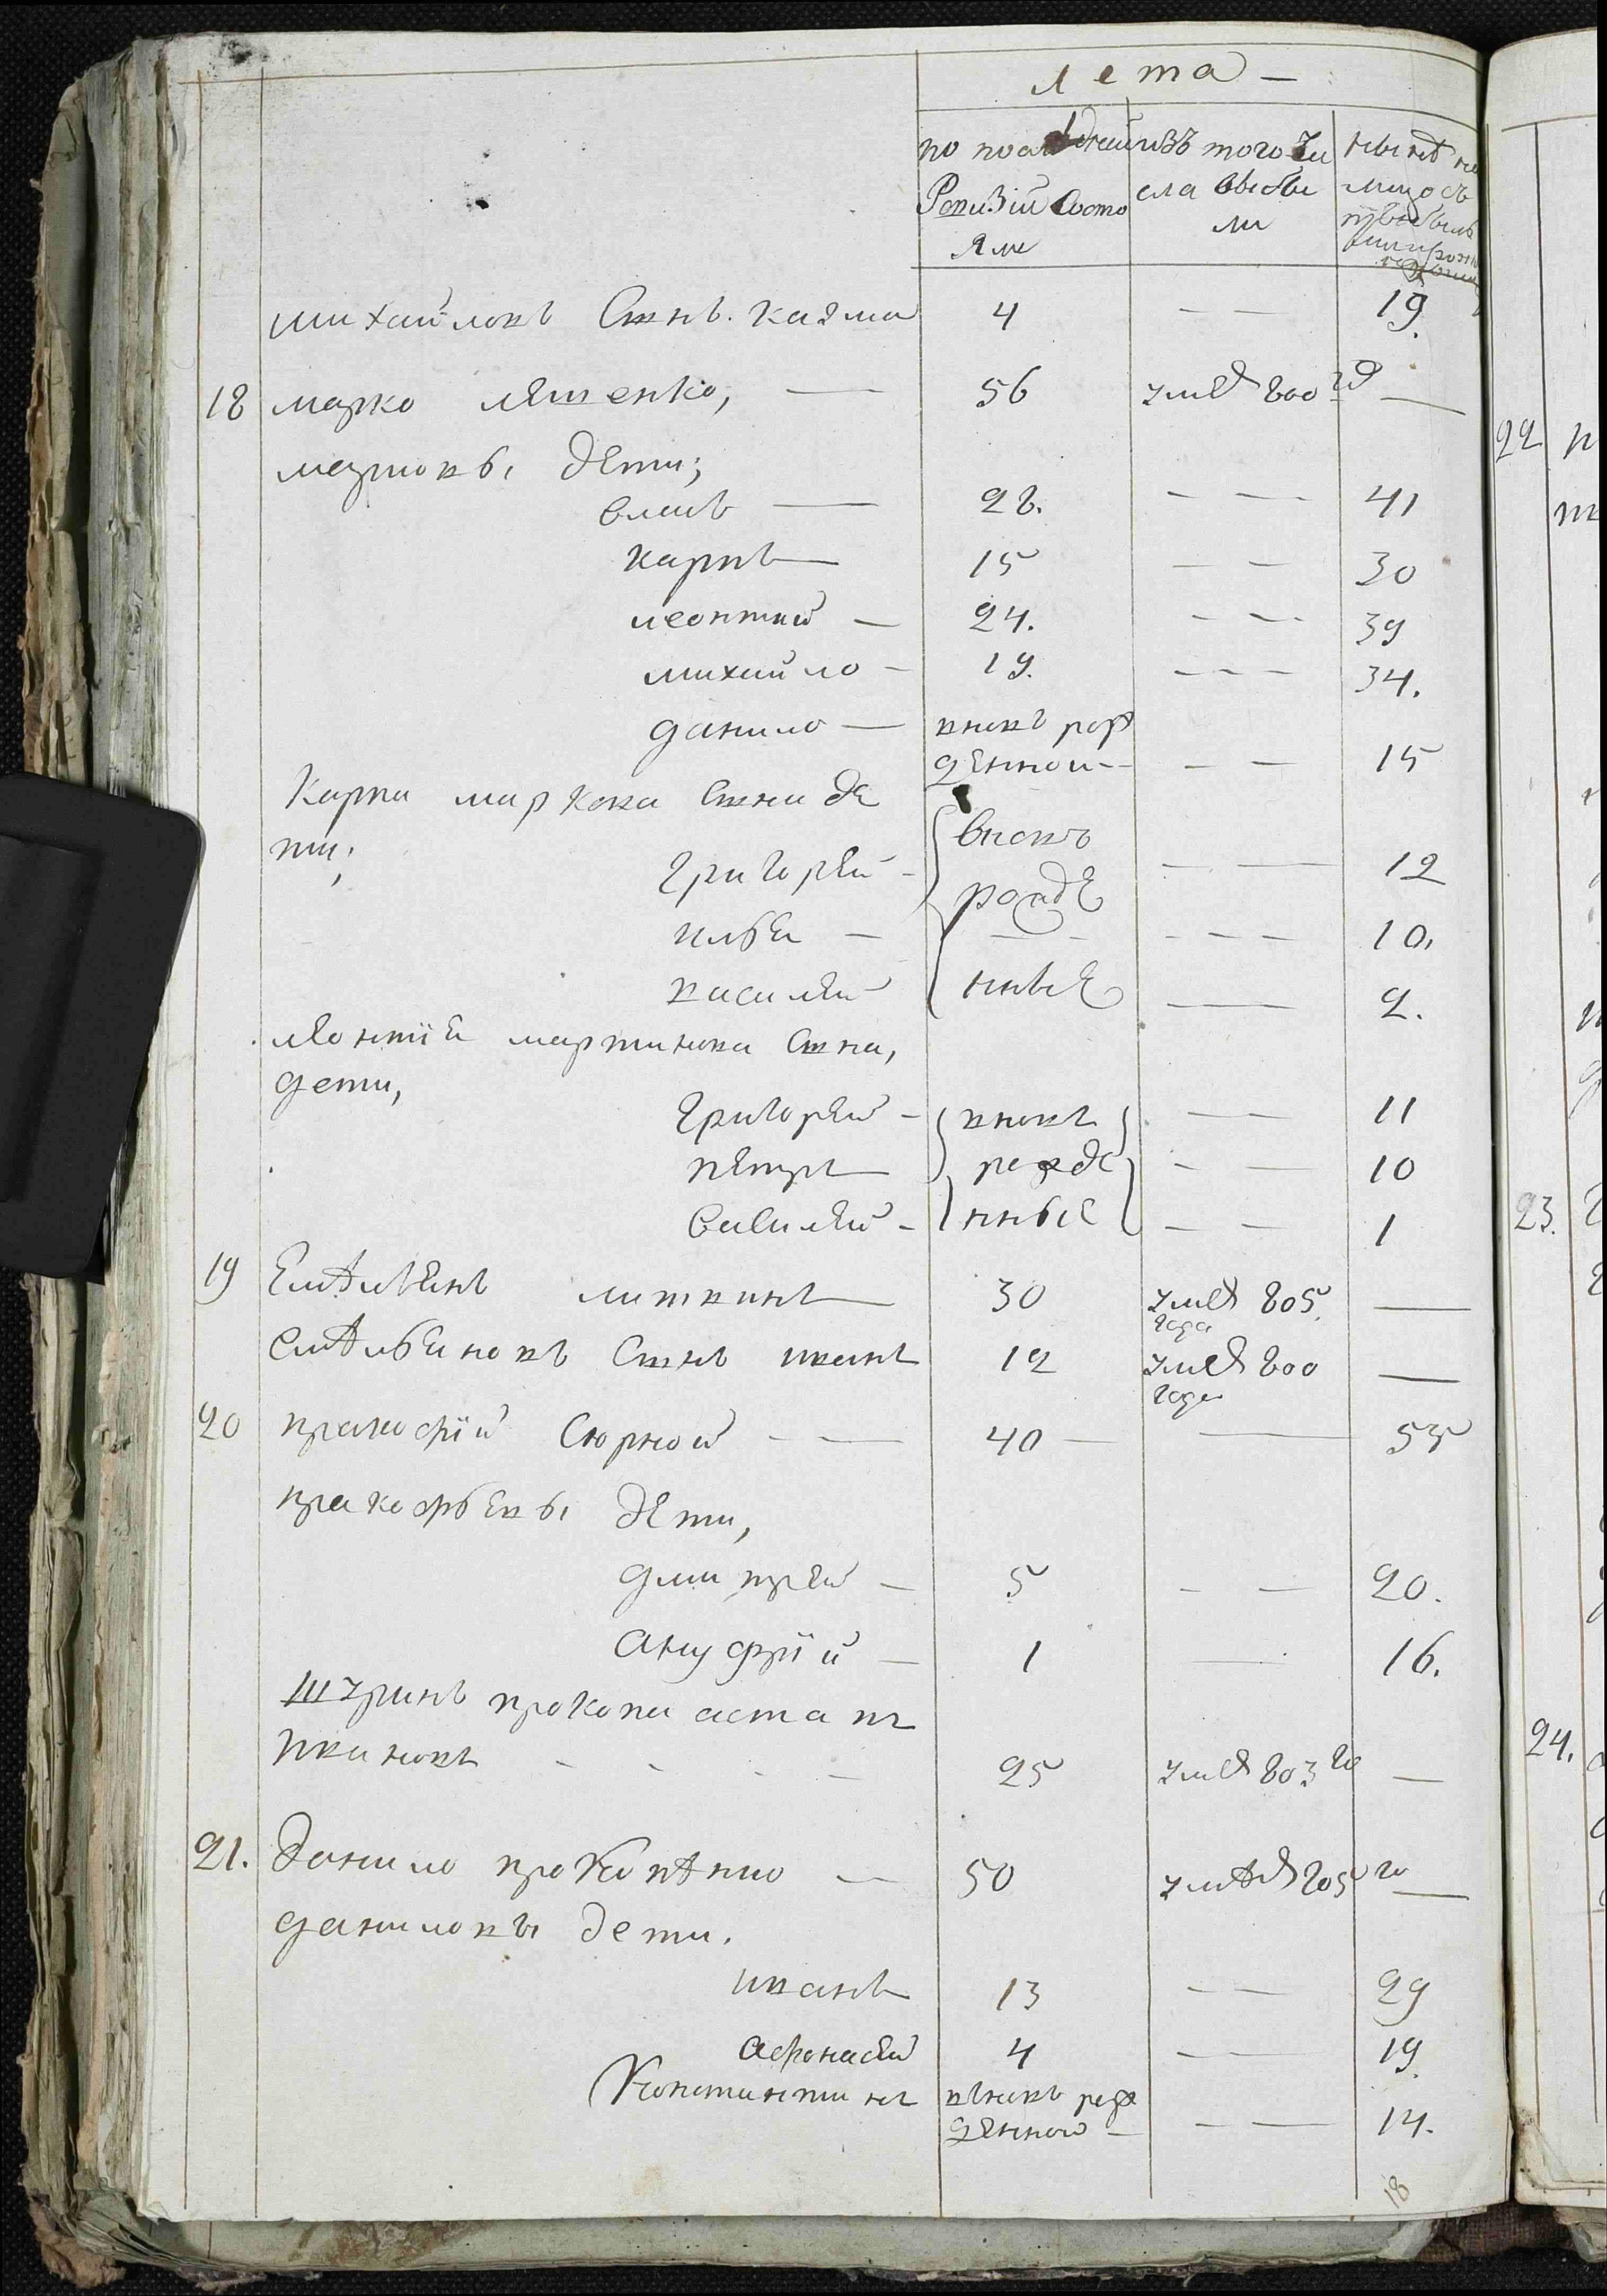 лета —
по последней
Ревизiи состо
яли
изъ того чи
сла выбы
ли
ныне на
лицо съ
михайловъ сынъ козма 4 — — 19.
18 марко ляшенко, — 56 умеръ 800 го —
марковы дети;
власъ — 28. — — 41
карпъ — 15 — — 30
леонтий — 24. — — 39
михайло — 19. — — 34.
данило — вновь рож
денной — — — 15
Карпа маркова сына де
ти;
григорей — вновь — — 12
рожде
илья — — — — 10.
василей — нные — 2.
леонтiя мартинова сына,
дети,
григорей — вновь — 11
петръ — рожде — — 10
василей — нные — — 1
19 Емельянъ литвинъ — 30 умеръ 805 —
года
емельяновъ сынъ иванъ 12 умеръ 800 —
года
20 пракофiй — — 40 — — 55
пракофьевы дети,
дмитрей — 5 — — 20.
ануфрiй — 1 — 16.
шуринъ прокопа астапъ
ивановъ - - - — 25 умеръ 803 го —
21. Данило — 50 умеръ 805 го —
даниловы дети.
иванъ 13 — — 29
афонасей 4 — — 19.
Константинъ вновь рож
денной — — — 14.
18
22
23.
24.